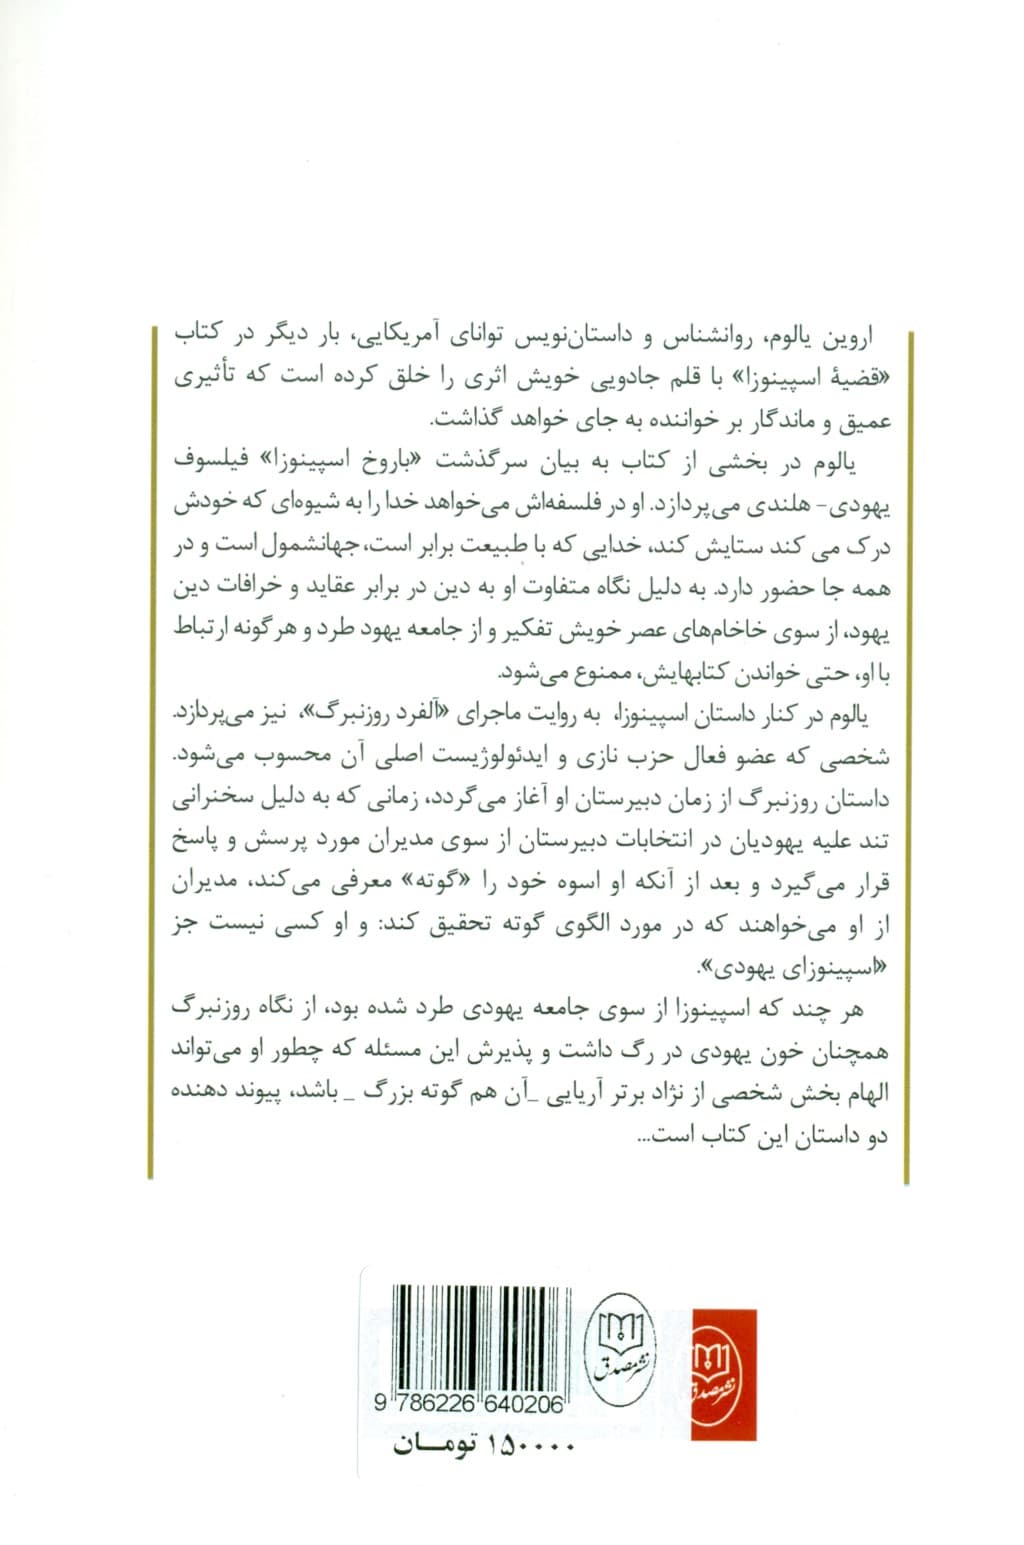 اروین یالوم، روانشناس و داستان‌نویس توانای آمریکایی، بار دیگر در کتاب
«قضیۀ اسپینوزا» با قلم جادویی خویش اثری را خلق کرده است که تأثیری
عمیق و ماندگار بر خواننده به جای خواهد گذاشت.
یالوم در بخشی از کتاب به بیان سرگذشت «باروخ اسپینوزا» فیلسوف
یهودی- هلندی می‌پردازد. او در فلسفه‌اش می‌خواهد خدا را به شیوه‌ای که خودش
درک می کند ستایش کند، خدایی که با طبیعت برابر است، جهانشمول است و در
همه جا حضور دارد. به دلیل نگاه متفاوت او به دین در برابر عقاید و خرافات دین
یهود، از سوی خاخام‌های عصر خویش تفکیر و از جامعه یهود طرد و هرگونه ارتباط
با او، حتی خواندن کتابهایش، ممنوع می‌شود.
یالوم در کنار داستان اسپینوزا، به روایت ماجرای «آلفرد روزنبرگ»، نیز می‌پردازد.
شخصی که عضو فعال حزب نازی و ایدئولوژیست اصلی آن محسوب می‌شود.
داستان روزنبرگ از زمان دبیرستان او آغاز می‌گردد، زمانی که به دلیل سخنرانی
تند علیه یهودیان در انتخابات دبیرستان از سوی مدیران مورد پرسش و پاسخ
قرار می‌گیرد و بعد از آنکه او اسوه خود را «گوته» معرفی می‌کند، مدیران
از او می‌خواهند که در مورد الگوی گوته تحقیق کند: و او کسی نیست جز
«اسپینوزای یهودی».
هر چند که اسپینوزا از سوی جامعه یهودی طرد شده بود، از نگاه روزنبرگ
همچنان خون یهودی در رگ داشت و پذیرش این مسئله که چطور او می‌تواند
الهام بخش شخصی از نژاد برتر آریایی _آن هم گوته بزرگ _ باشد، پیوند دهنده
دو داستان این کتاب است...
نشر مصدق
نشر مصدق
9 786226 640206
۱۵۰۰۰۰ تومـــان